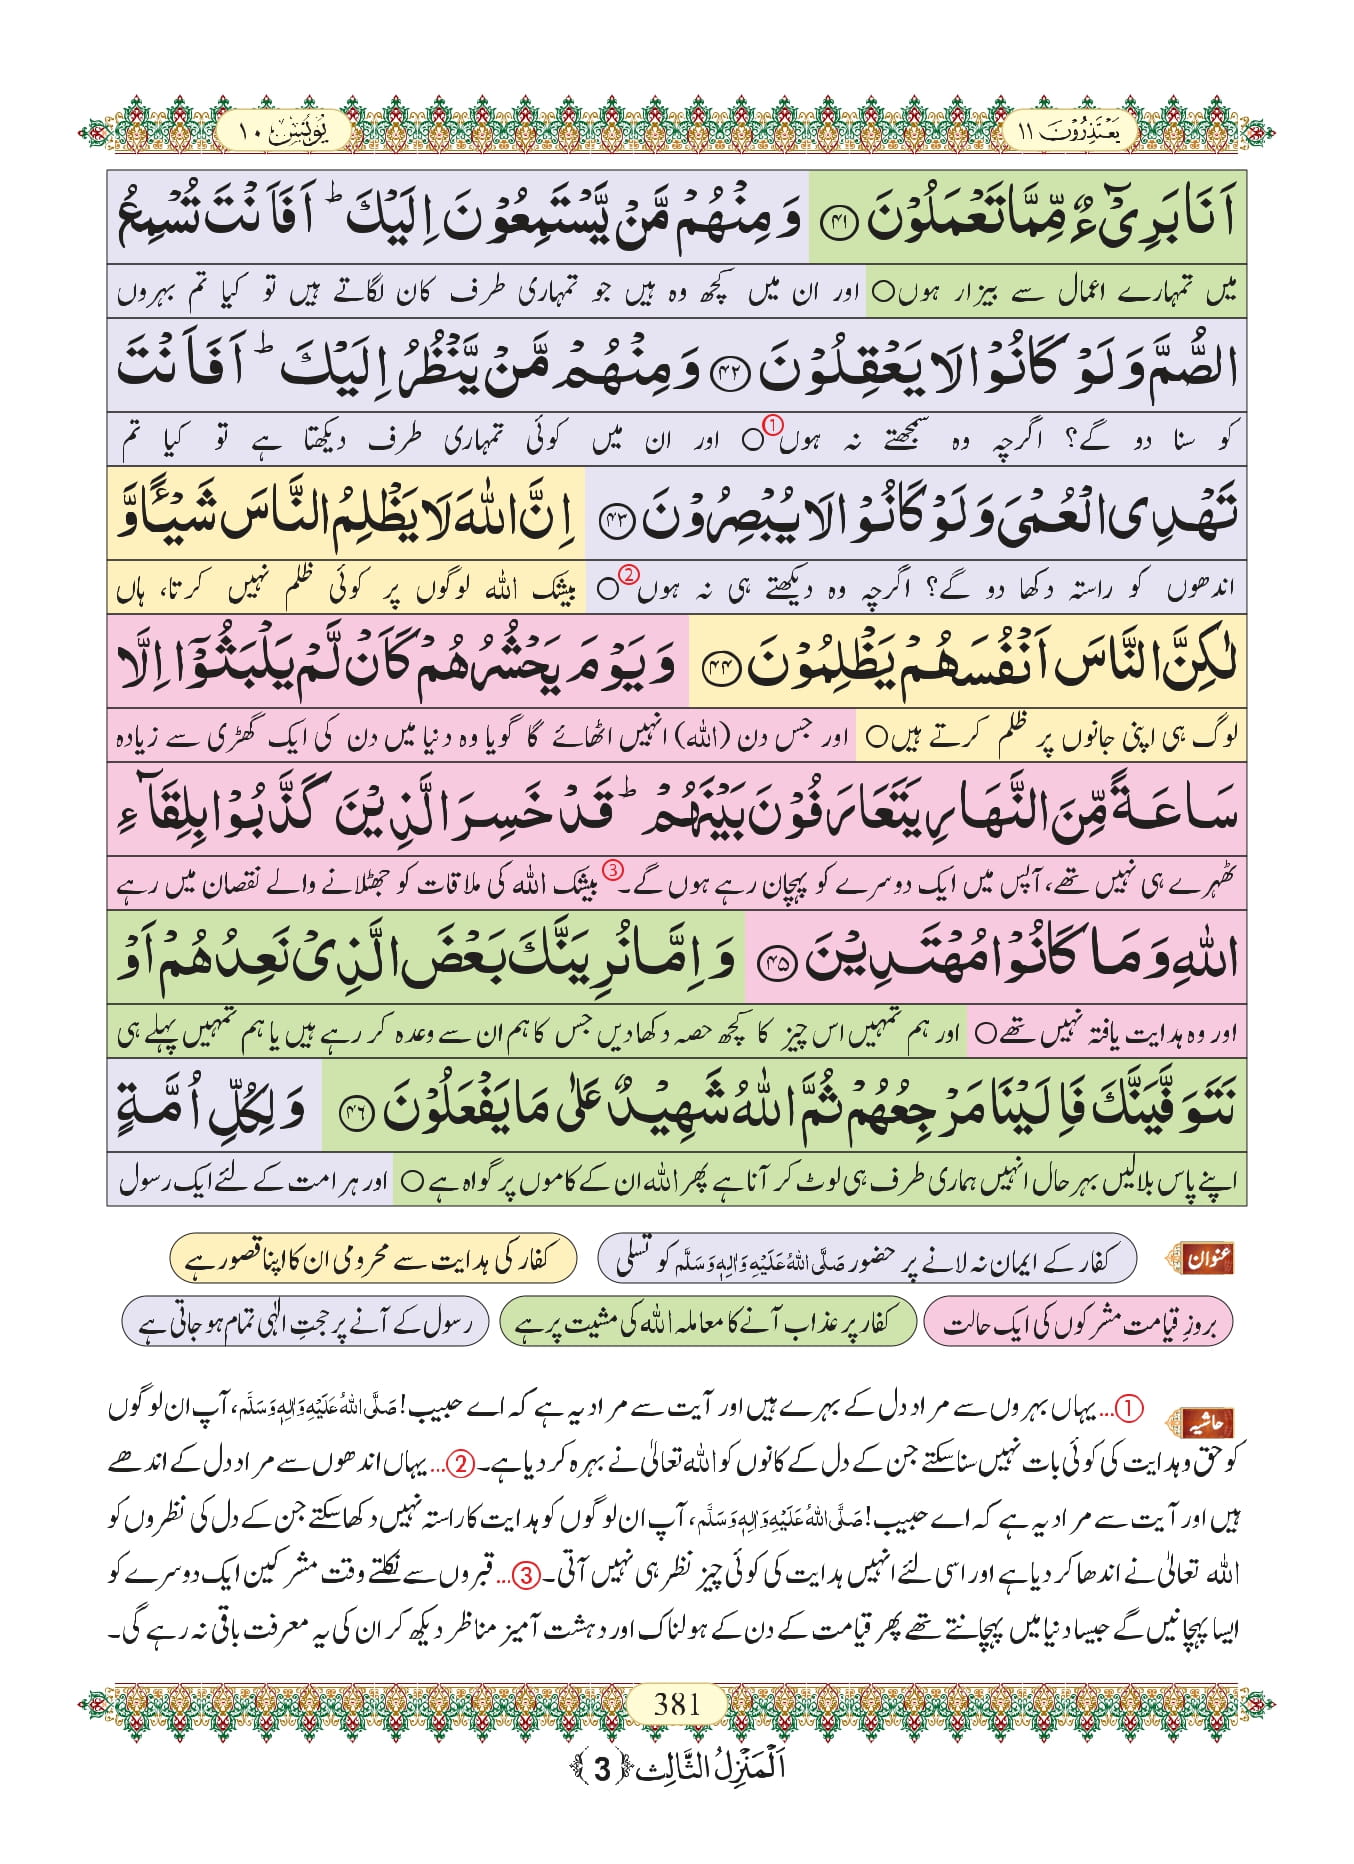 یَعْتَذِرُوْنَ ۱۱
یُوْنُس ۱۰
اَنَا بَرِیْٓءٌ مِّمَّا تَعْمَلُوْنَ ﴿۴۱﴾ وَ مِنْهُمْ مَّنْ یَّسْتَمِعُوْنَ اِلَیْكَ ؕ اَفَاَنْتَ تُسْمِعُ
میں تمہارے اعمال سے بیزار ہوں○ اور ان میں کچھ وہ ہیں جو تمہاری طرف کان لگاتے ہیں تو کیا تم بہروں
الصُّمَّ وَ لَوْ كَانُوْا لَا یَعْقِلُوْنَ ﴿۴۲﴾ وَ مِنْهُمْ مَّنْ یَّنْظُرُ اِلَیْكَ ؕ اَفَاَنْتَ
کو سنا دو گے؟ اگرچہ وہ سمجھتے نہ ہوں①○ اور ان میں کوئی تمہاری طرف دیکھتا ہے تو کیا تم
تَهْدِی الْعُمْیَ وَ لَوْ كَانُوْا لَا یُبْصِرُوْنَ ﴿۴۳﴾ اِنَّ اللّٰهَ لَا یَظْلِمُ النَّاسَ شَیْــٴًـا وَّ
اندھوں کو راستہ دکھا دو گے؟ اگرچہ وہ دیکھتے ہی نہ ہوں②○ بیشک اللہ لوگوں پر کوئی ظلم نہیں کرتا، ہاں
لٰكِنَّ النَّاسَ اَنْفُسَهُمْ یَظْلِمُوْنَ ﴿۴۴﴾ وَ یَوْمَ یَحْشُرُهُمْ كَاَنْ لَّمْ یَلْبَثُوْۤا اِلَّا
لوگ ہی اپنی جانوں پر ظلم کرتے ہیں○ اور جس دن (اللہ) انہیں اٹھائے گا گویا وہ دنیا میں دن کی ایک گھڑی سے زیادہ
سَاعَةً مِّنَ النَّهَارِ یَتَعَارَفُوْنَ بَیْنَهُمْ ؕ قَدْ خَسِرَ الَّذِیْنَ كَذَّبُوْا بِلِقَآءِ
ٹھہرے ہی نہیں تھے، آپس میں ایک دوسرے کو پہچان رہے ہوں گے۔③ بیشک اللہ کی ملاقات کو جھٹلانے والے نقصان میں رہے
اللّٰهِ وَ مَا كَانُوْا مُهْتَدِیْنَ ﴿۴۵﴾ وَ اِمَّا نُرِیَنَّكَ بَعْضَ الَّذِیْ نَعِدُهُمْ اَوْ
اور وہ ہدایت یافتہ نہیں تھے○ اور ہم تمہیں اس چیز کا کچھ حصہ دکھادیں جس کا ہم ان سے وعدہ کر رہے ہیں یا ہم تمہیں پہلے ہی
نَتَوَفَّیَنَّكَ فَاِلَیْنَا مَرْجِعُهُمْ ثُمَّ اللّٰهُ شَهِیْدٌ عَلٰى مَا یَفْعَلُوْنَ ﴿۴۶﴾ وَ لِكُلِّ اُمَّةٍ
اپنے پاس بلالیں بہرحال انہیں ہماری طرف ہی لوٹ کر آنا ہے پھر اللہ ان کے کاموں پر گواہ ہے○ اور ہر امت کے لئے ایک رسول
عنوان کفار کے ایمان نہ لانے پر حضور صَلَّی اللّٰهُ عَلَیْهِ وَاٰلِهٖ وَسَلَّم کو تسلی کفار کی ہدایت سے محرومی ان کا اپنا قصور ہے
بروزِ قیامت مشرکوں کی ایک حالت کفار پر عذاب آنے کا معاملہ اللہ کی مشیت پر ہے رسول کے آنے پر حجتِ الٰہی تمام ہو جاتی ہے
حاشیہ ①... یہاں بہروں سے مراد دل کے بہرے ہیں اور آیت سے مراد یہ ہے کہ اے حبیب! صَلَّی اللّٰهُ عَلَیْهِ وَاٰلِهٖ وَسَلَّم، آپ ان لوگوں
کو حق و ہدایت کی کوئی بات نہیں سنا سکتے جن کے دل کے کانوں کو اللہ تعالیٰ نے بہرہ کر دیا ہے۔ ②... یہاں اندھوں سے مراد دل کے اندھے
ہیں اور آیت سے مراد یہ ہے کہ اے حبیب! صَلَّی اللّٰهُ عَلَیْهِ وَاٰلِهٖ وَسَلَّم، آپ ان لوگوں کو ہدایت کا راستہ نہیں دکھا سکتے جن کے دل کی نظروں کو
اللہ تعالیٰ نے اندھا کر دیا ہے اور اسی لئے انہیں ہدایت کی کوئی چیز نظر ہی نہیں آتی۔ ③... قبروں سے نکلتے وقت مشرکین ایک دوسرے کو
ایسا پہچانیں گے جیسا دنیا میں پہچانتے تھے پھر قیامت کے دن کے ہولناک اور دہشت آمیز مناظر دیکھ کر ان کی یہ معرفت باقی نہ رہے گی۔
381
اَلْمَنْزِلُ الثَّالِث ﴿3﴾